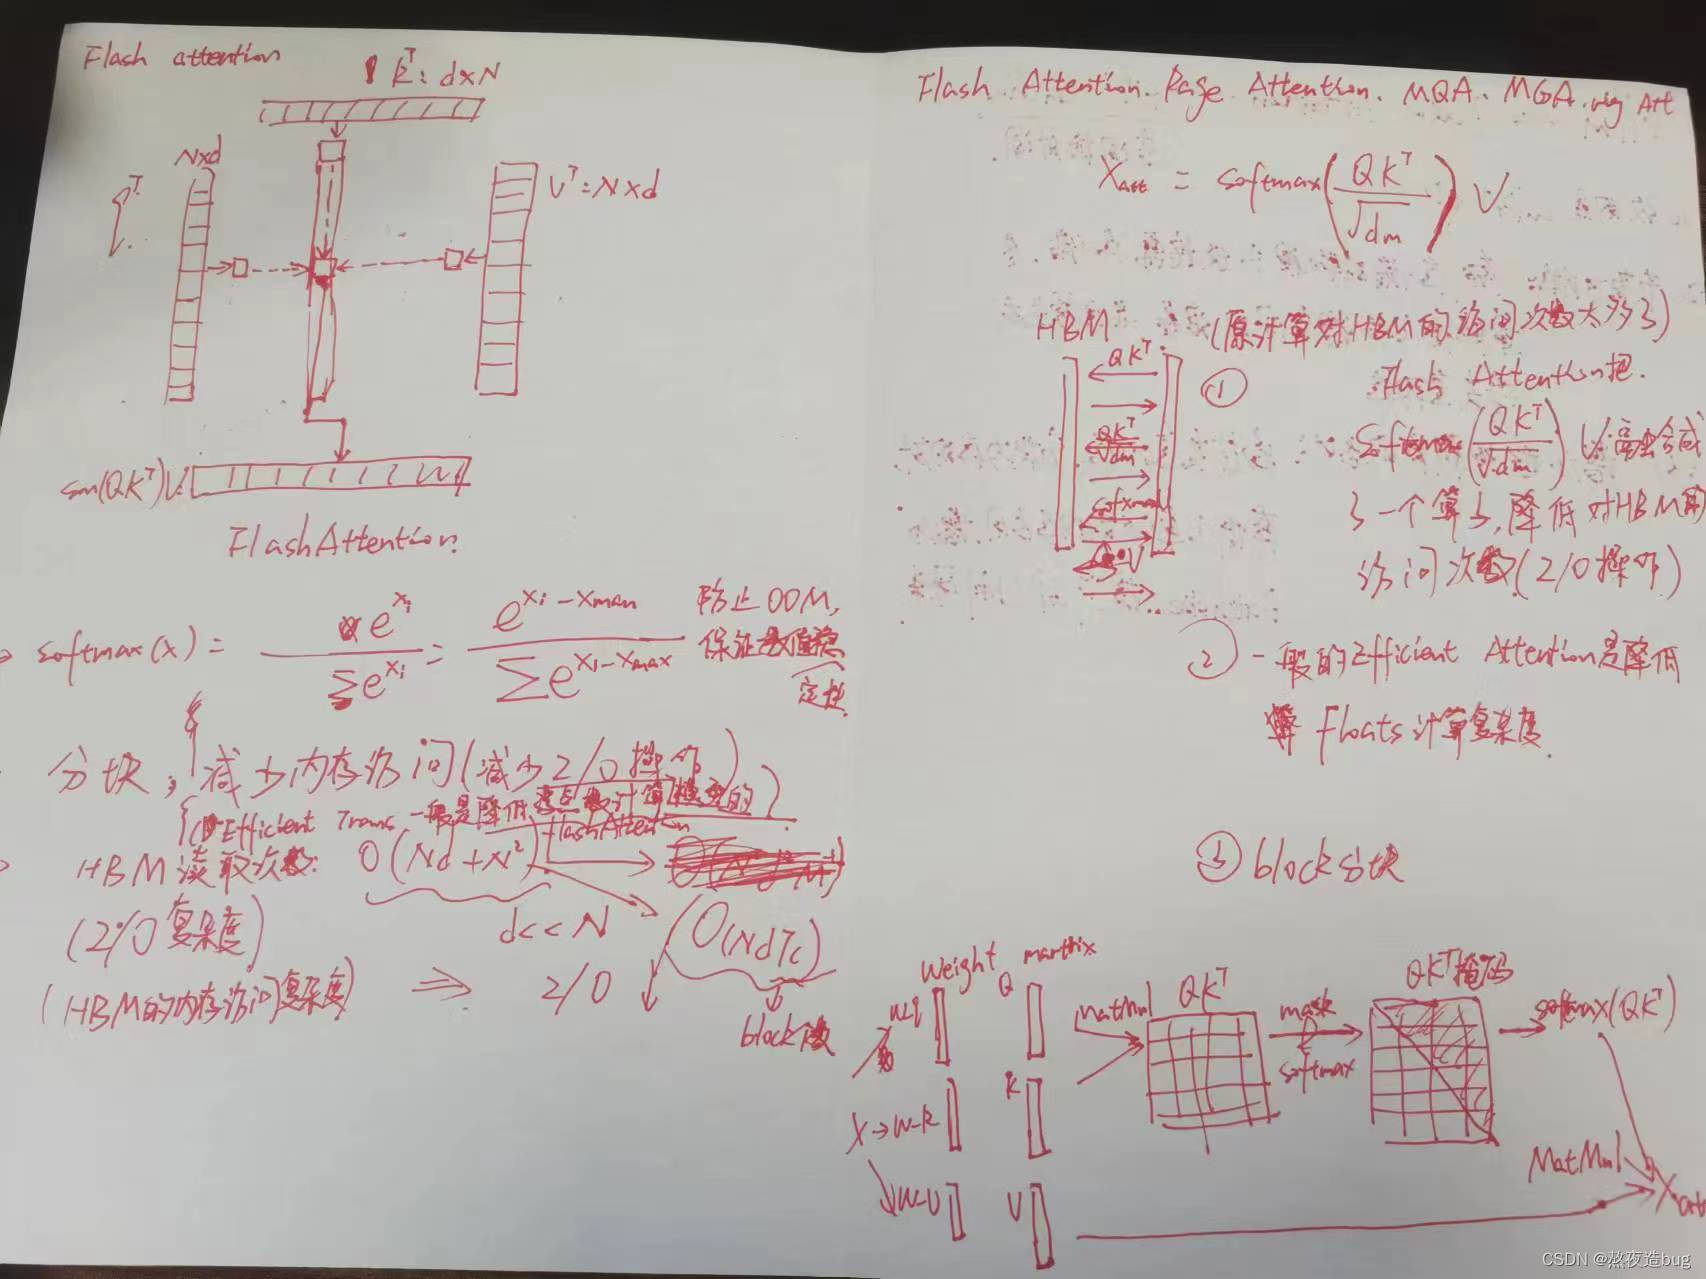 Flash attention
K^T: d×N
N×d
V^T: N×d
sm(QK^T)V:
FlashAttention.
softmax(x) = e^{xi} / ∑e^{xi} = e^{xi-xmax} / ∑e^{xi-xmax}
防止OOM,
保证数值稳
定性
分块, 减少内存访问(减少I/O操作)
Efficient Trans 一般是降低浮点数计算
FlashAttention
HBM读取次数: O(Nd+N²)
(I/O复杂度)
d<<N
O(NdTc)
(HBM的内存访问复杂度) ⇒ I/O
block数
Flash Attention. Page Attention. MQA. MGA. Att
X_att = softmax(QK^T / √dm) V
HBM
(原计算对HBM的访问次数太多了)
QK^T
QK^T / √dm
softmax
·V
①
Flash Attention把
Softmax(QK^T / √dm) V 融合成
了一个算子,降低对HBM的
访问次数(I/O操作)
② 一般的Efficient Attention是降低
Floats计算复杂度
③ block分块
Weight
marthix
Q
MatMul
QK^T
mask
softmax
QK^T掩码
softmax(QK^T)
K
X→W-K
W-V
V
MatMul
X_att
CSDN @熬夜造bug